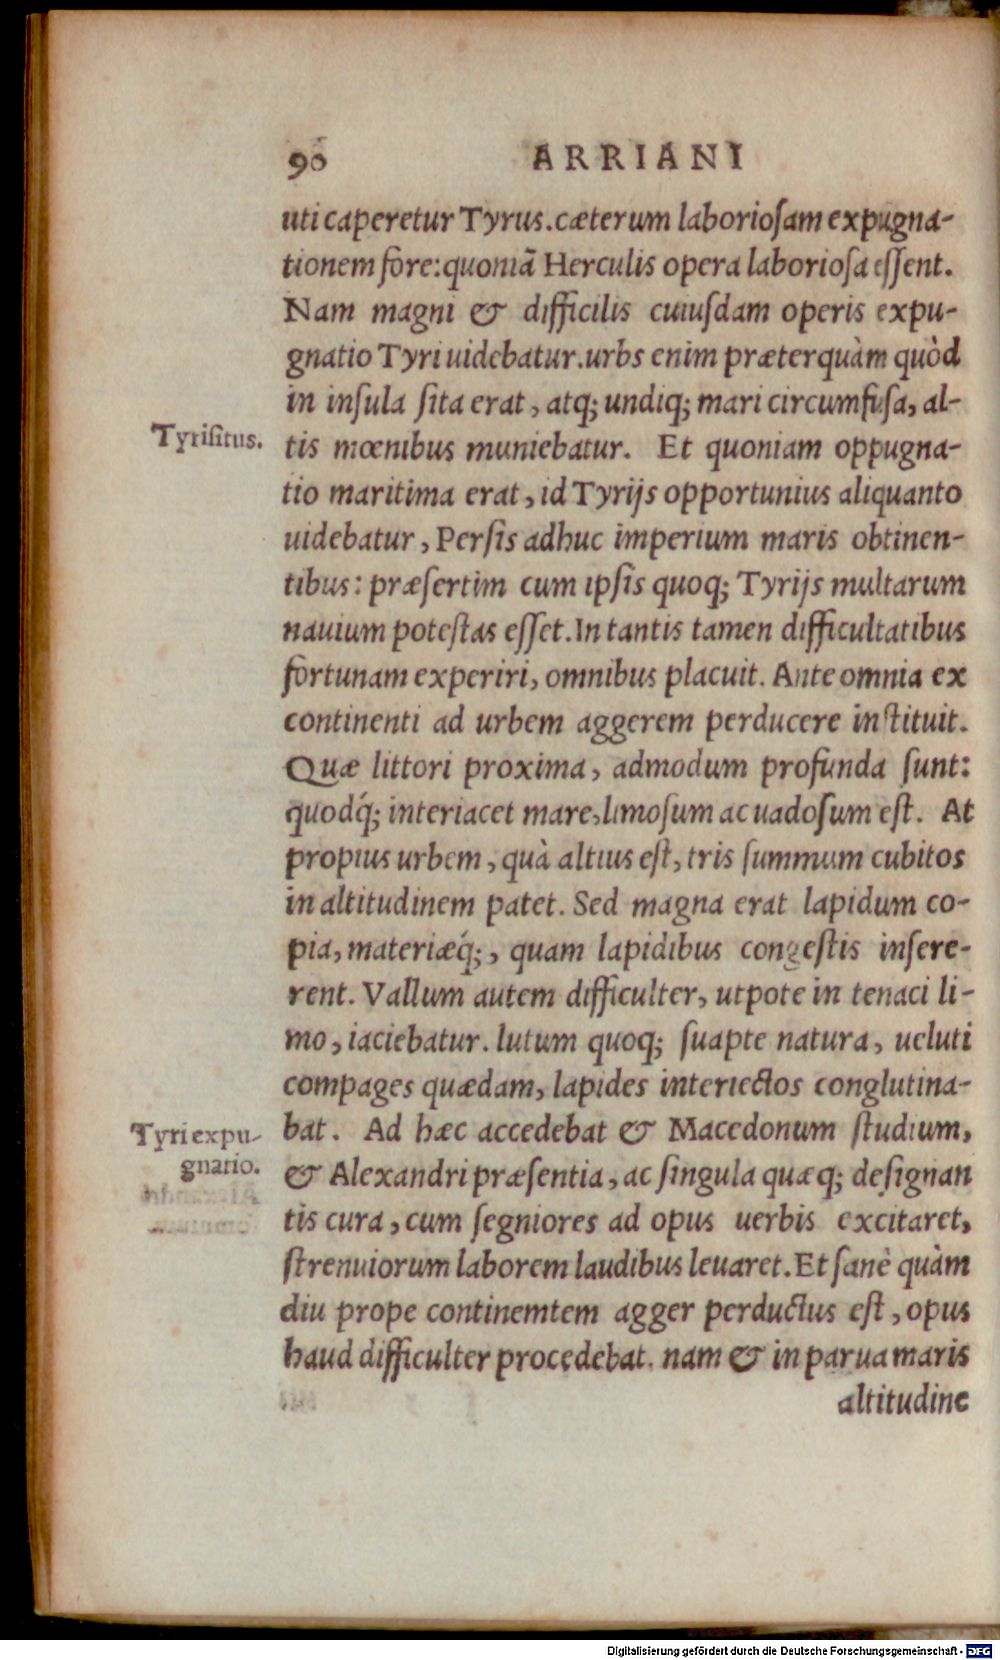 90 ARRIANI
uti caperetur Tyrus. cæterum laboriosam expugna-
tionem fore: quoniã Herculis opera laboriosa essent.
Nam magni & difficilis cuiusdam operis expu-
gnatio Tyri uidebatur. urbs enim præterquàm quòd
in insula sita erat, atq; undiq; mari circumfusa, al-
Tyri situs.
tis mœnibus muniebatur. Et quoniam oppugna-
tio maritima erat, id Tyrijs opportunius aliquanto
uidebatur, Persis adhuc imperium maris obtinen-
tibus: præsertim cum ipsis quoq; Tyrijs multarum
nauium potestas esset. In tantis tamen difficultatibus
fortunam experiri, omnibus placuit. Ante omnia ex
continenti ad urbem aggerem perducere instituit.
Quæ littori proxima, admodum profunda sunt:
quodq́; interiacet mare, limosum ac uadosum est. At
propius urbem, quà altius est, tris summum cubitos
in altitudinem patet. Sed magna erat lapidum co-
pia, materiæq́;, quam lapidibus congestis insere-
rent. Vallum autem difficulter, utpote in tenaci li-
mo, iaciebatur. lutum quoq; suapte natura, ueluti
compages quædam, lapides interiectos conglutina-
Tyri expu-
gnatio.
bat. Ad hæc accedebat & Macedonum studium,
& Alexandri præsentia, ac singula quæq; designan
tis cura, cum segniores ad opus uerbis excitaret,
strenuiorum laborem laudibus leuaret. Et sanè quàm
diu prope continemtem agger perductus est, opus
haud difficulter procedebat. nam & in parua maris
altitudine
Digitalisierung gefördert durch die Deutsche Forschungsgemeinschaft - DFG